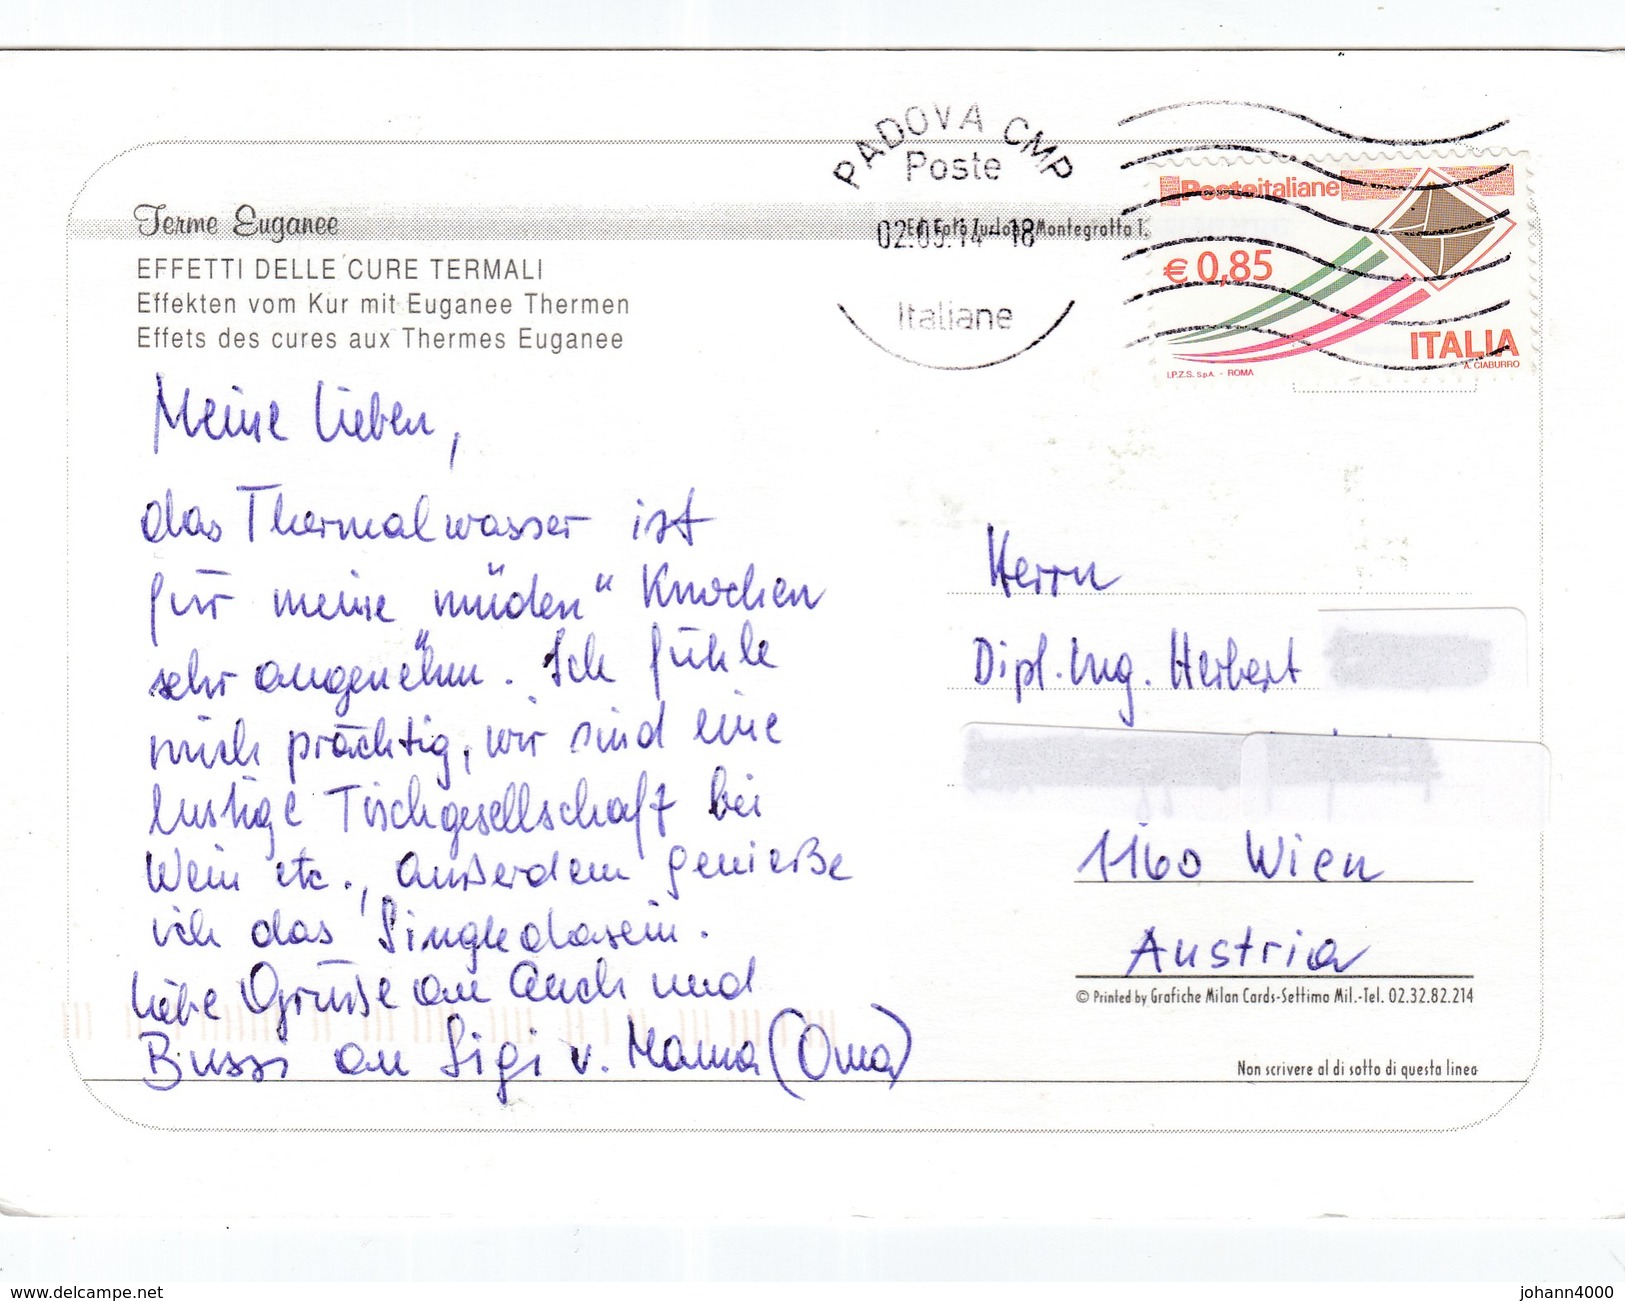 PADOVA CMP
Poste
02.05.14-18
Italiane
Posteitaliane
€ 0,85
ITALIA
A. CIABURRO
I.P.Z.S. S.p.A. - ROMA
Terme Euganee
Montegrotto T.
EFFETTI DELLE CURE TERMALI
Effekten vom Kur mit Euganee Thermen
Effets des cures aux Thermes Euganee
Meine Lieben,
das Thermalwasser ist
für meine „müden“ Knochen
sehr angenehm. Ich fühle
mich prächtig, wir sind eine
lustige Tischgesellschaft bei
Wein etc., außerdem genieße
ich das Singledasein.
Liebe Grüße an Euch und
Bussi an Sigi v. Mama (Oma)
Herrn
Dipl. Ing. Herbert
1160 Wien
Austria
© Printed by Grafiche Milan Cards-Settimo Mil.-Tel. 02.32.82.214
Non scrivere al di sotto di questa linea
www.delcampe.net
johann4000